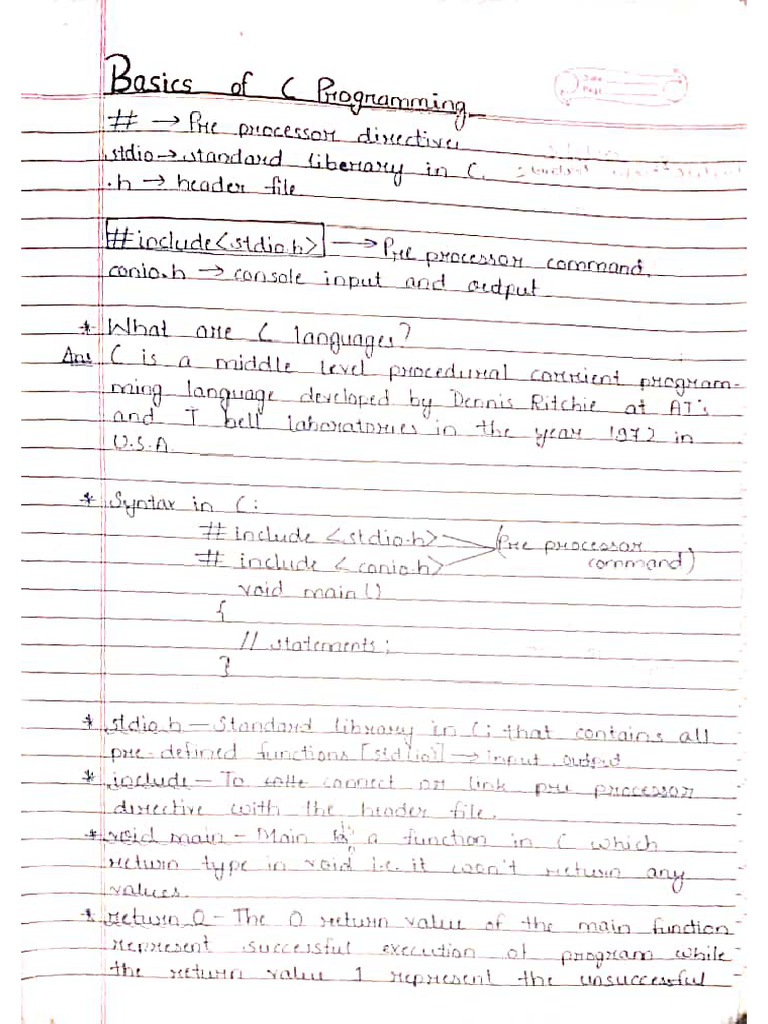 Date
Page
Basics of C Programming
# → Pre processor directive.
stdio → standard liberary in C.
.h → header file
#include<stdio.h> → Pre processor command.
conio.h → console input and output
* What are C languages?
Ans C is a middle level procedural corrient program-
ming language developed by Dennis Ritchie at AT's
and T bell laboratories in the year 1972 in
U.S.A
* Syntax in C:
# include <stdio.h>
(Pre processor
# include <conio.h>
command)
void main()
{
// statements;
}
* stdio.h – Standard library in C; that contains all
pre-defined functions → input, output
* include – To connect or link pre processor
directive with the header file.
* void main – Main is a function in C which
return type in void i.e. it won't return any
values.
* return 0 – The 0 return value of the main function
represent successful execution of program while
the return value 1 represent the unsuccessful